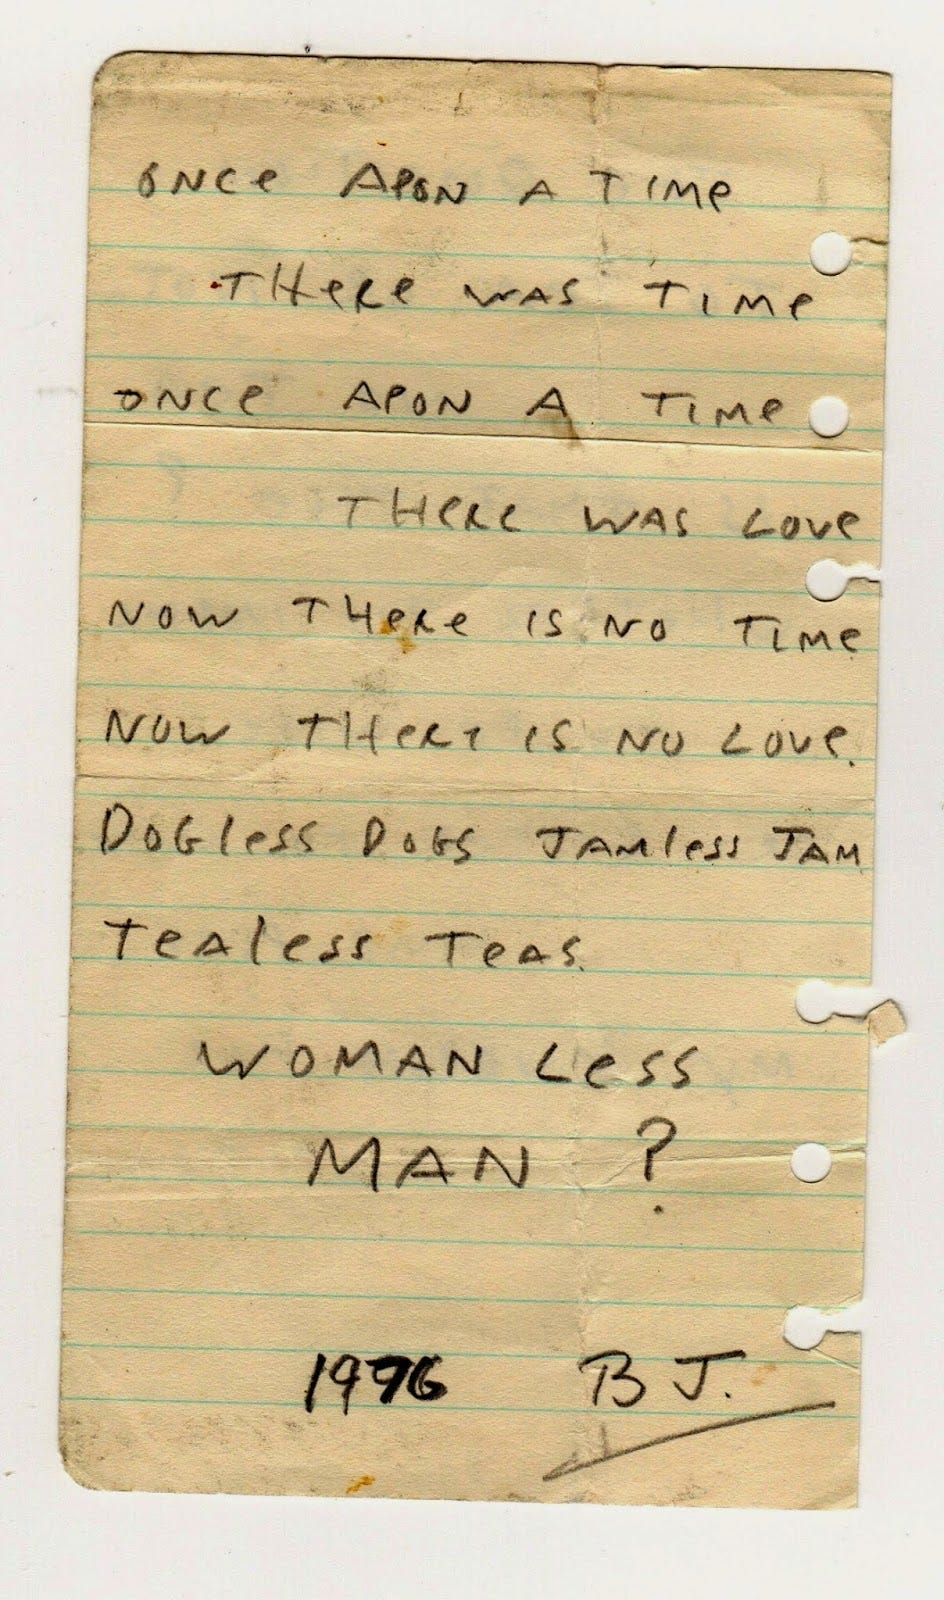 ONCE APON A TIME
THERE WAS TIME
ONCE APON A TIME
THERE WAS LOVE
NOW THERE IS NO TIME
NOW THERE IS NO LOVE.
DOGless DOGS JAMless JAM
Tealess TEAS.
WOMAN Less
MAN ?
1976 BJ.